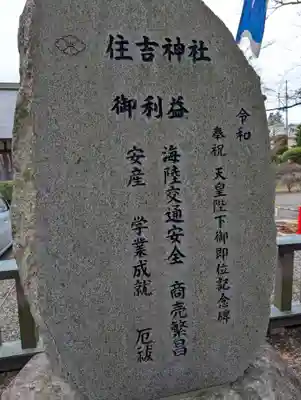 住吉神社
御利益
令和
奉祝 天皇陛下御即位記念碑
海陸交通安全 商売繁昌
安産 学業成就 厄祓